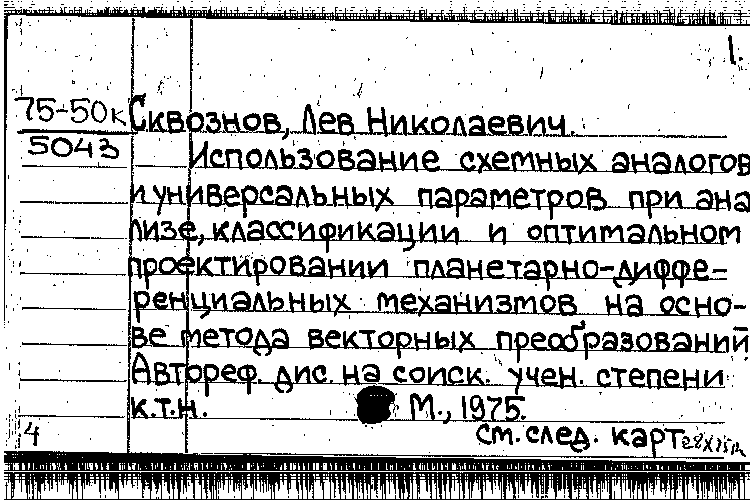 1.
75-50к Сквознов, Лев Николаевич.
5043 Использование схемных аналогов
и универсальных параметров при ана
лизе, классификации и оптимальном
проектировании планетарно-диффе-
ренциальных механизмов на осно-
ве метода векторных преобразований
Автореф. дис. на соиск. учен. степени
к.т.н. М., 1975.
4 см. след. карт